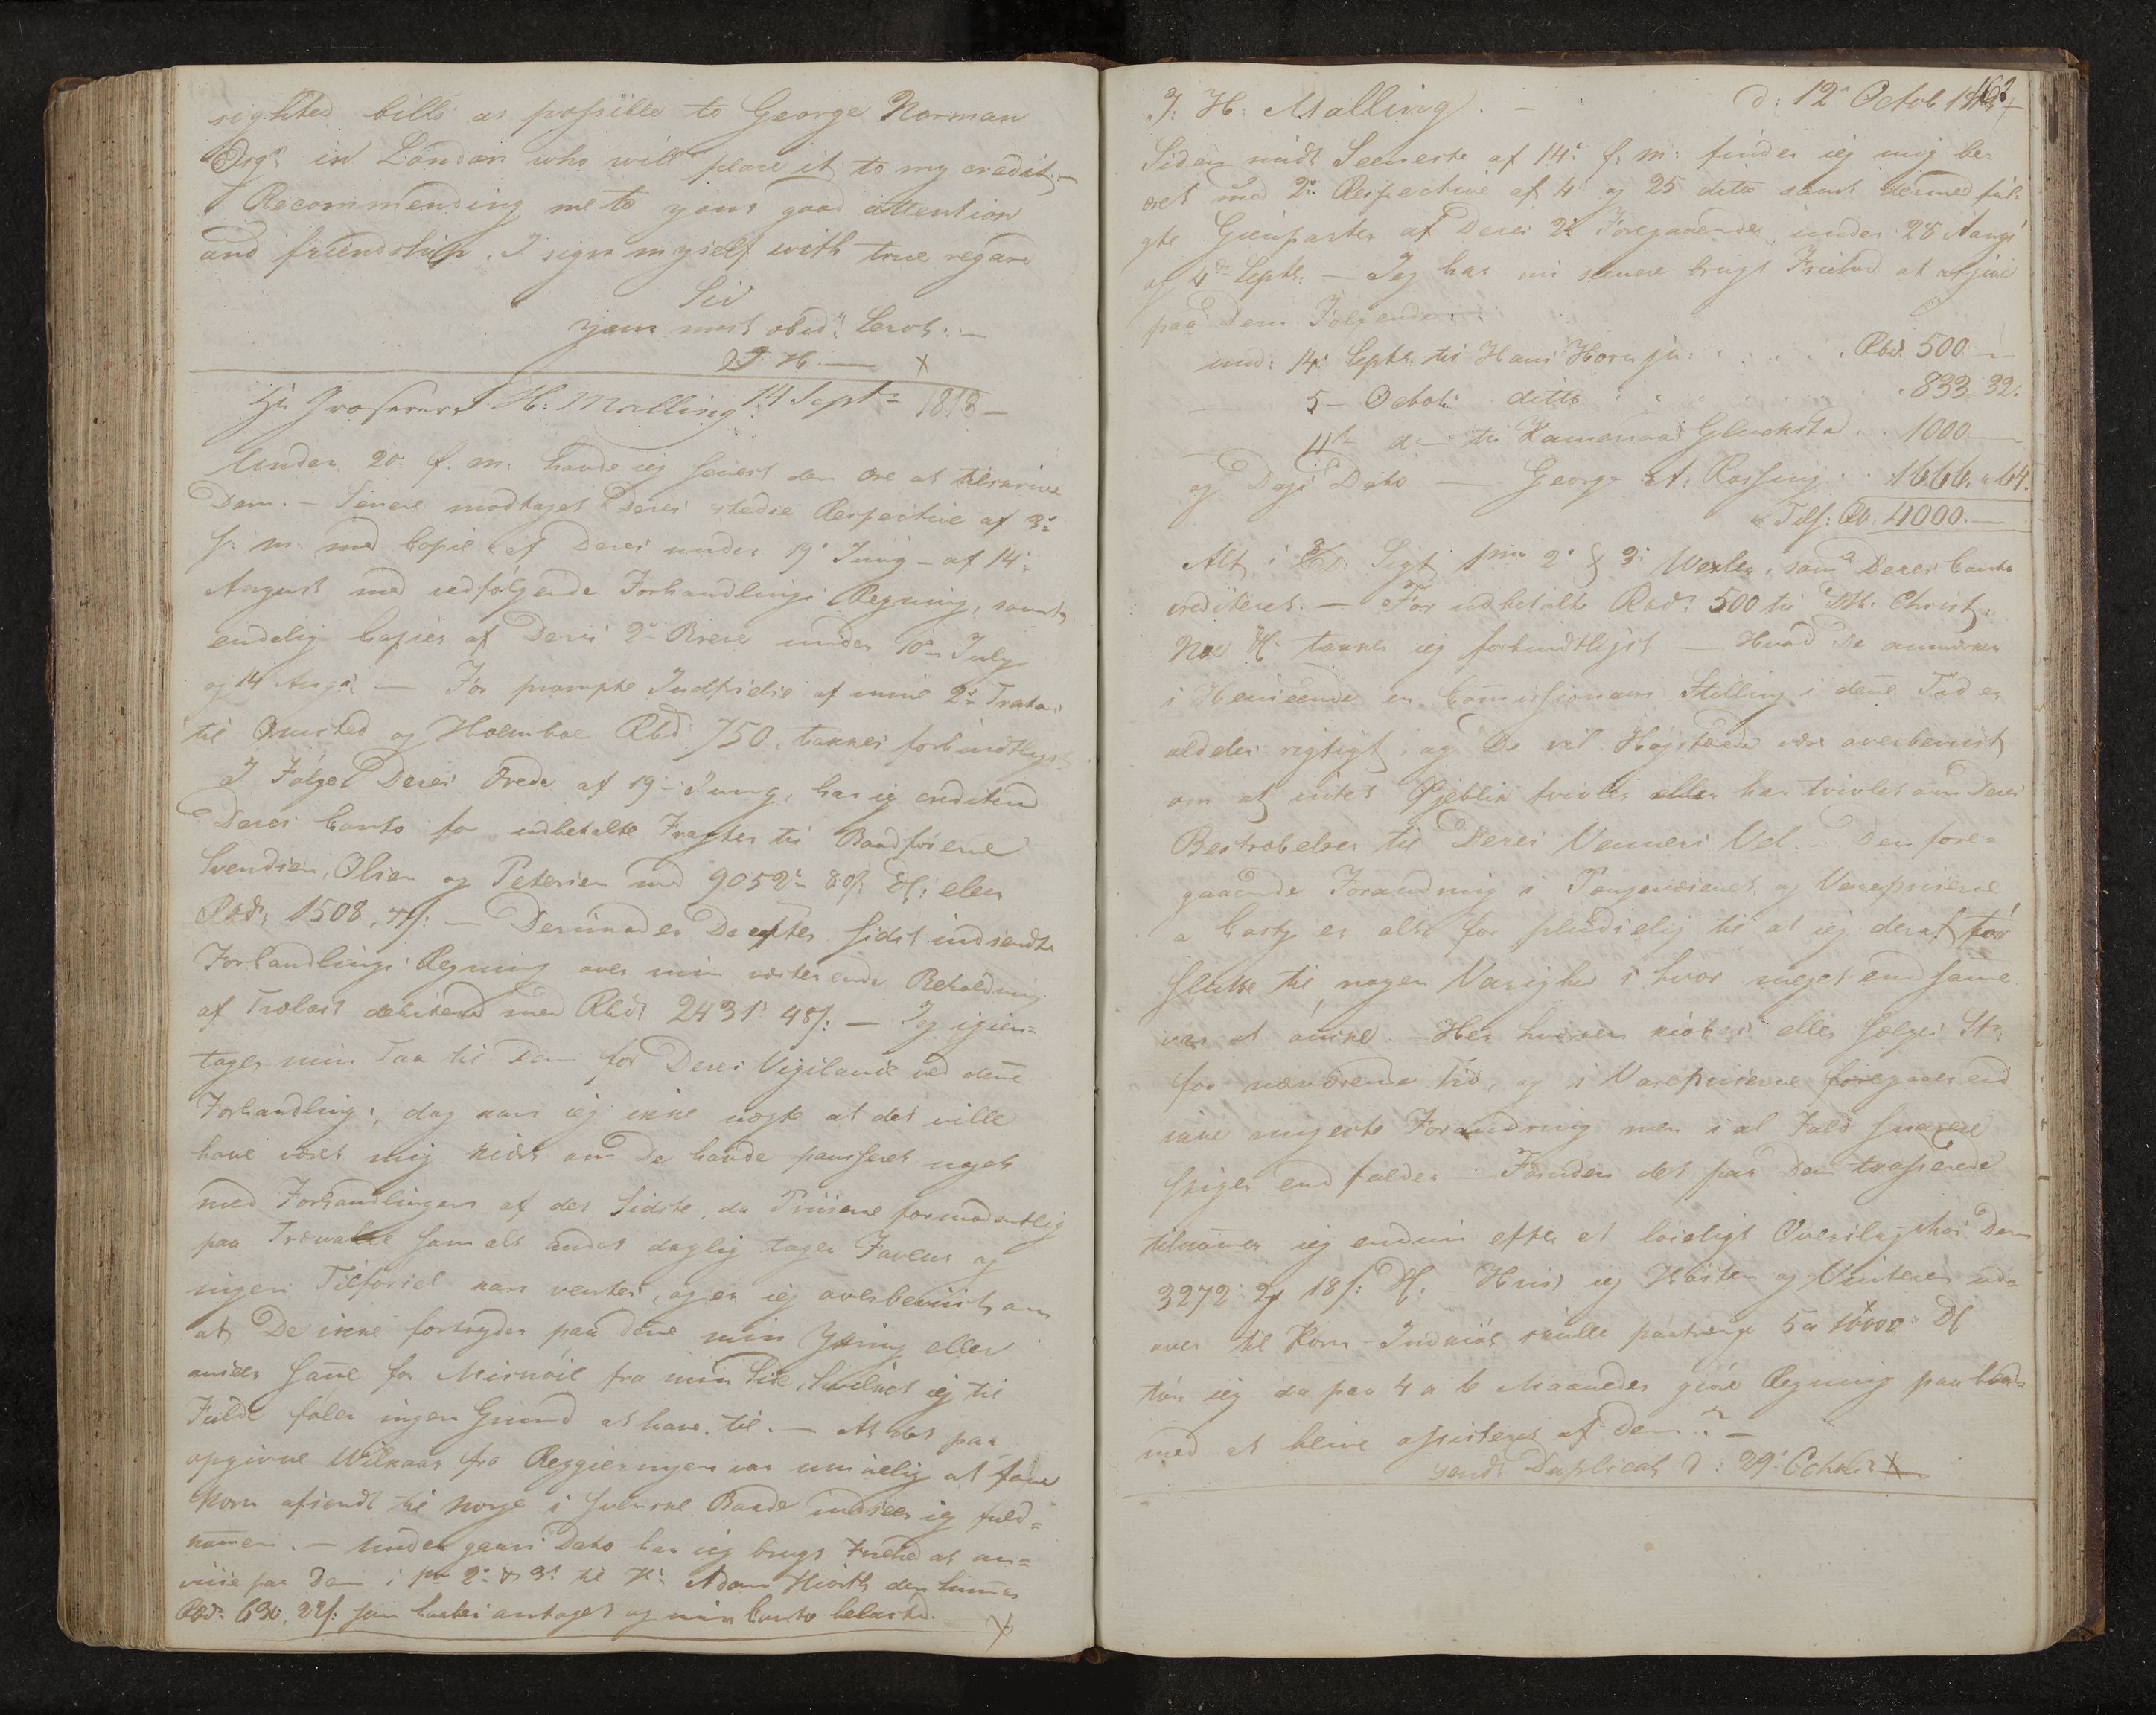 sighted bills as possible to George Norman
Esqr in London who will place it to my credit, —
Recommending me to your good attention
and friendship. I sign myself with true regard
Sir
your most obedt Servt. —
J. H. — X
Hr Grosserer J. H: Malling 14 Septr 1813 —
Under 20 f. m. havde jeg senest den Ære at tilskrive
Dem. — Senere modtaget Deres stedse Respective af 3
f. m. med Copie af Deres under 19 Juny — af 14
August med vedfølgende Forhandlings Regning, samt
endelig Copier af Deres 2de Breve under 10 July
og 14 Aug. — For prompte Indfrielse af mine 2de Tratter
til Omsted og Holmboe Rbd. 750, takkes forbindtligst
I Følge Deres Ordre af 19 Juny, har jeg crediteret
Deres Conto for udbetalte Fragter til Baadførerne
Svendsen, Olsen og Petersen med 9052 80s: eller
Rbd. 1508, — Derimod er De efter sidst indsendte
Forhandlings Regning over min værende Beholdning
af Trælast debiteret med Rbd 2431 48s: — Jeg igien=
tager min Tak til Dem for Deres Vigilance ved denne
Forhandling; dog kan jeg ikke nægte at det ville
have været mig kiært om De havde pausseret noget
med Forhandlingen af det Sidste, da Priserne formodentlig
paa Trævahre som alt andet daglig tager Faveur og
ingen Tilførsel kan ventes, og er jeg overbeviist om
at De ikke fortryder paa denne min Yttring eller
anseer samme for Misnøie fra min Side, hvilket jeg til
Fulde føler ingen Grund at have til. — At det paa
opgivne Vilkaar fra Regieringen var umuelig at faae
Korn afsendt til Norge i svenske Baade indseer jeg fuld=
kommen. — Under Gaars Dato har jeg brugt Friehed at an=
viise paa Dem i 2 & 3 til Hr Adam Hiorth den Summa
Rbd. 630, 22s: som bedes antaget og min Conto belastet. X
J: H: Malling. — d: 12 Octob 1813
162
Siden mit Seeneste af 14 f. m: finder jeg mig be=
æret med 2de Respective af 4 og 25 ditto samt dermed føl=
gte Gienparter af Deres 2de Foregaaende under 28 Aug
og 4de Septr: — Jeg har nu senere brugt Friehed at afgive
paa Dem Følgende:
und: 14 Septr til Hans Horn jr . . . . Rbd. 500 —
— 5 — Octob: ditto . . . . . 833 32.
— 11 — do — til Kammerraad Gluckstad . . 1000 —
og Dags Dato — George A: Rossing . . 1666 64.
Tils: Rb. 4000. —
Alt i Sigt 2 & 3 Wexler, som Deres Conto
crediteret. — For udbetalte Rbd. 500 til Christ:
takker jeg forbindtligst — Hvad De anmærker
i Henseende en Commissionairs Stilling i denne Tid er
aldeles rigtigt, og De vil Høystærede være overbeviist
om at intet Øjeblik tvivler eller har tvivlet om Deres
Bestræbelser til Deres Venners Vel. — Den fore=
gaaende Forandring i Pengevæsenet og Varepriserne
a Costy er alt for pludselig til at jeg deraf tør
slutte til nogen Varighed i hvor meget end samme
var at ønske. — Her hverken kiøbes eller sælges St:
for nærværende Tid, og i Varepriserne foregaaer end
ikke ringeste Forandring men i al Fald snarere
stiger end falder — Foruden det paa Dem trasserede
tilkommer jeg endnu efter et løseligt Overslag hos Dem
3272 2 18s: Hvis jeg Høsten og Vinteren ud=
over til Korn-Indkiøb skulle paatrænge 5 a 10000
tør jeg da paa 4 a 6 Maaneder giøre Regning paa
med at blive assisteret af Dem? —
sendt Duplicat d: 29 Octob: X